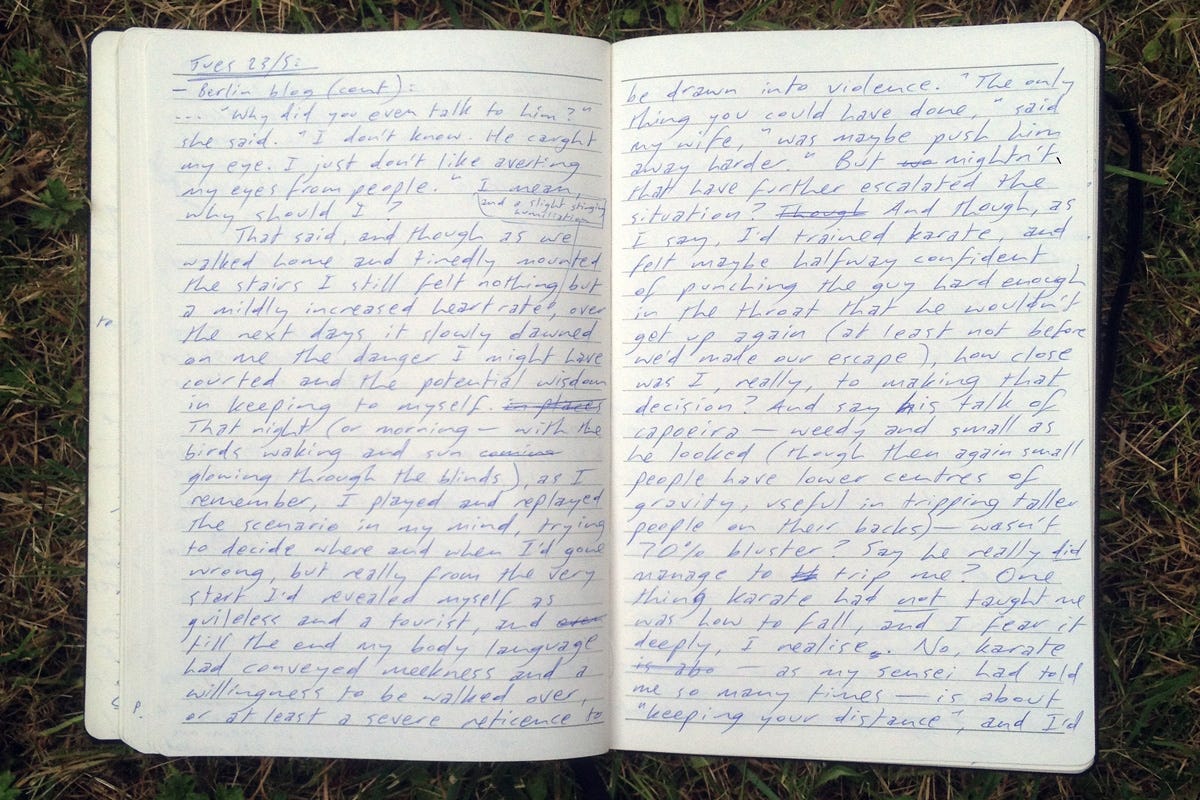 Tues 23/5:
- Berlin blog (cont):
... "Why did you even talk to him?"
she said. "I don't know. He caught
my eye. I just don't like averting
my eyes from people." I mean,
why should I?
and a slight stinging
humiliation
That said, and though as we
walked home and tiredly mounted
the stairs I still felt nothing but
a mildly increased heart rate, over
the next days it slowly dawned
on me the danger I might have
courted and the potential wisdom
in keeping to myself. in places
That night (or morning – with the
birds waking and sun coming
glowing through the blinds), as I
remember, I played and replayed
the scenario in my mind, trying
to decide where and when I'd gone
wrong, but really from the very
start I'd revealed myself as
guileless and a tourist, and even
till the end my body language
had conveyed meekness and a
willingness to be walked over,
or at least a severe reticence to
be drawn into violence. "The only
thing you could have done," said
my wife, "was maybe push him
away harder." But wo mightn't
that have further escalated the
situation? Though And though, as
I say, I'd trained karate, and
felt maybe halfway confident
of punching the guy hard enough
in the throat that he wouldn't
get up again (at least not before
we'd made our escape), how close
was I, really, to making that
decision? And say his talk of
capoeira – weedy and small as
he looked (though then again small
people have lower centres of
gravity, useful in tripping taller
people on their backs) – wasn't
70% bluster? Say he really did
manage to trip me? One
thing karate had not taught me
was how to fall, and I fear it
deeply, I realise. No, karate
is abo – as my sensei had told
me so many times – is about
"keeping your distance", and I'd
to
P.